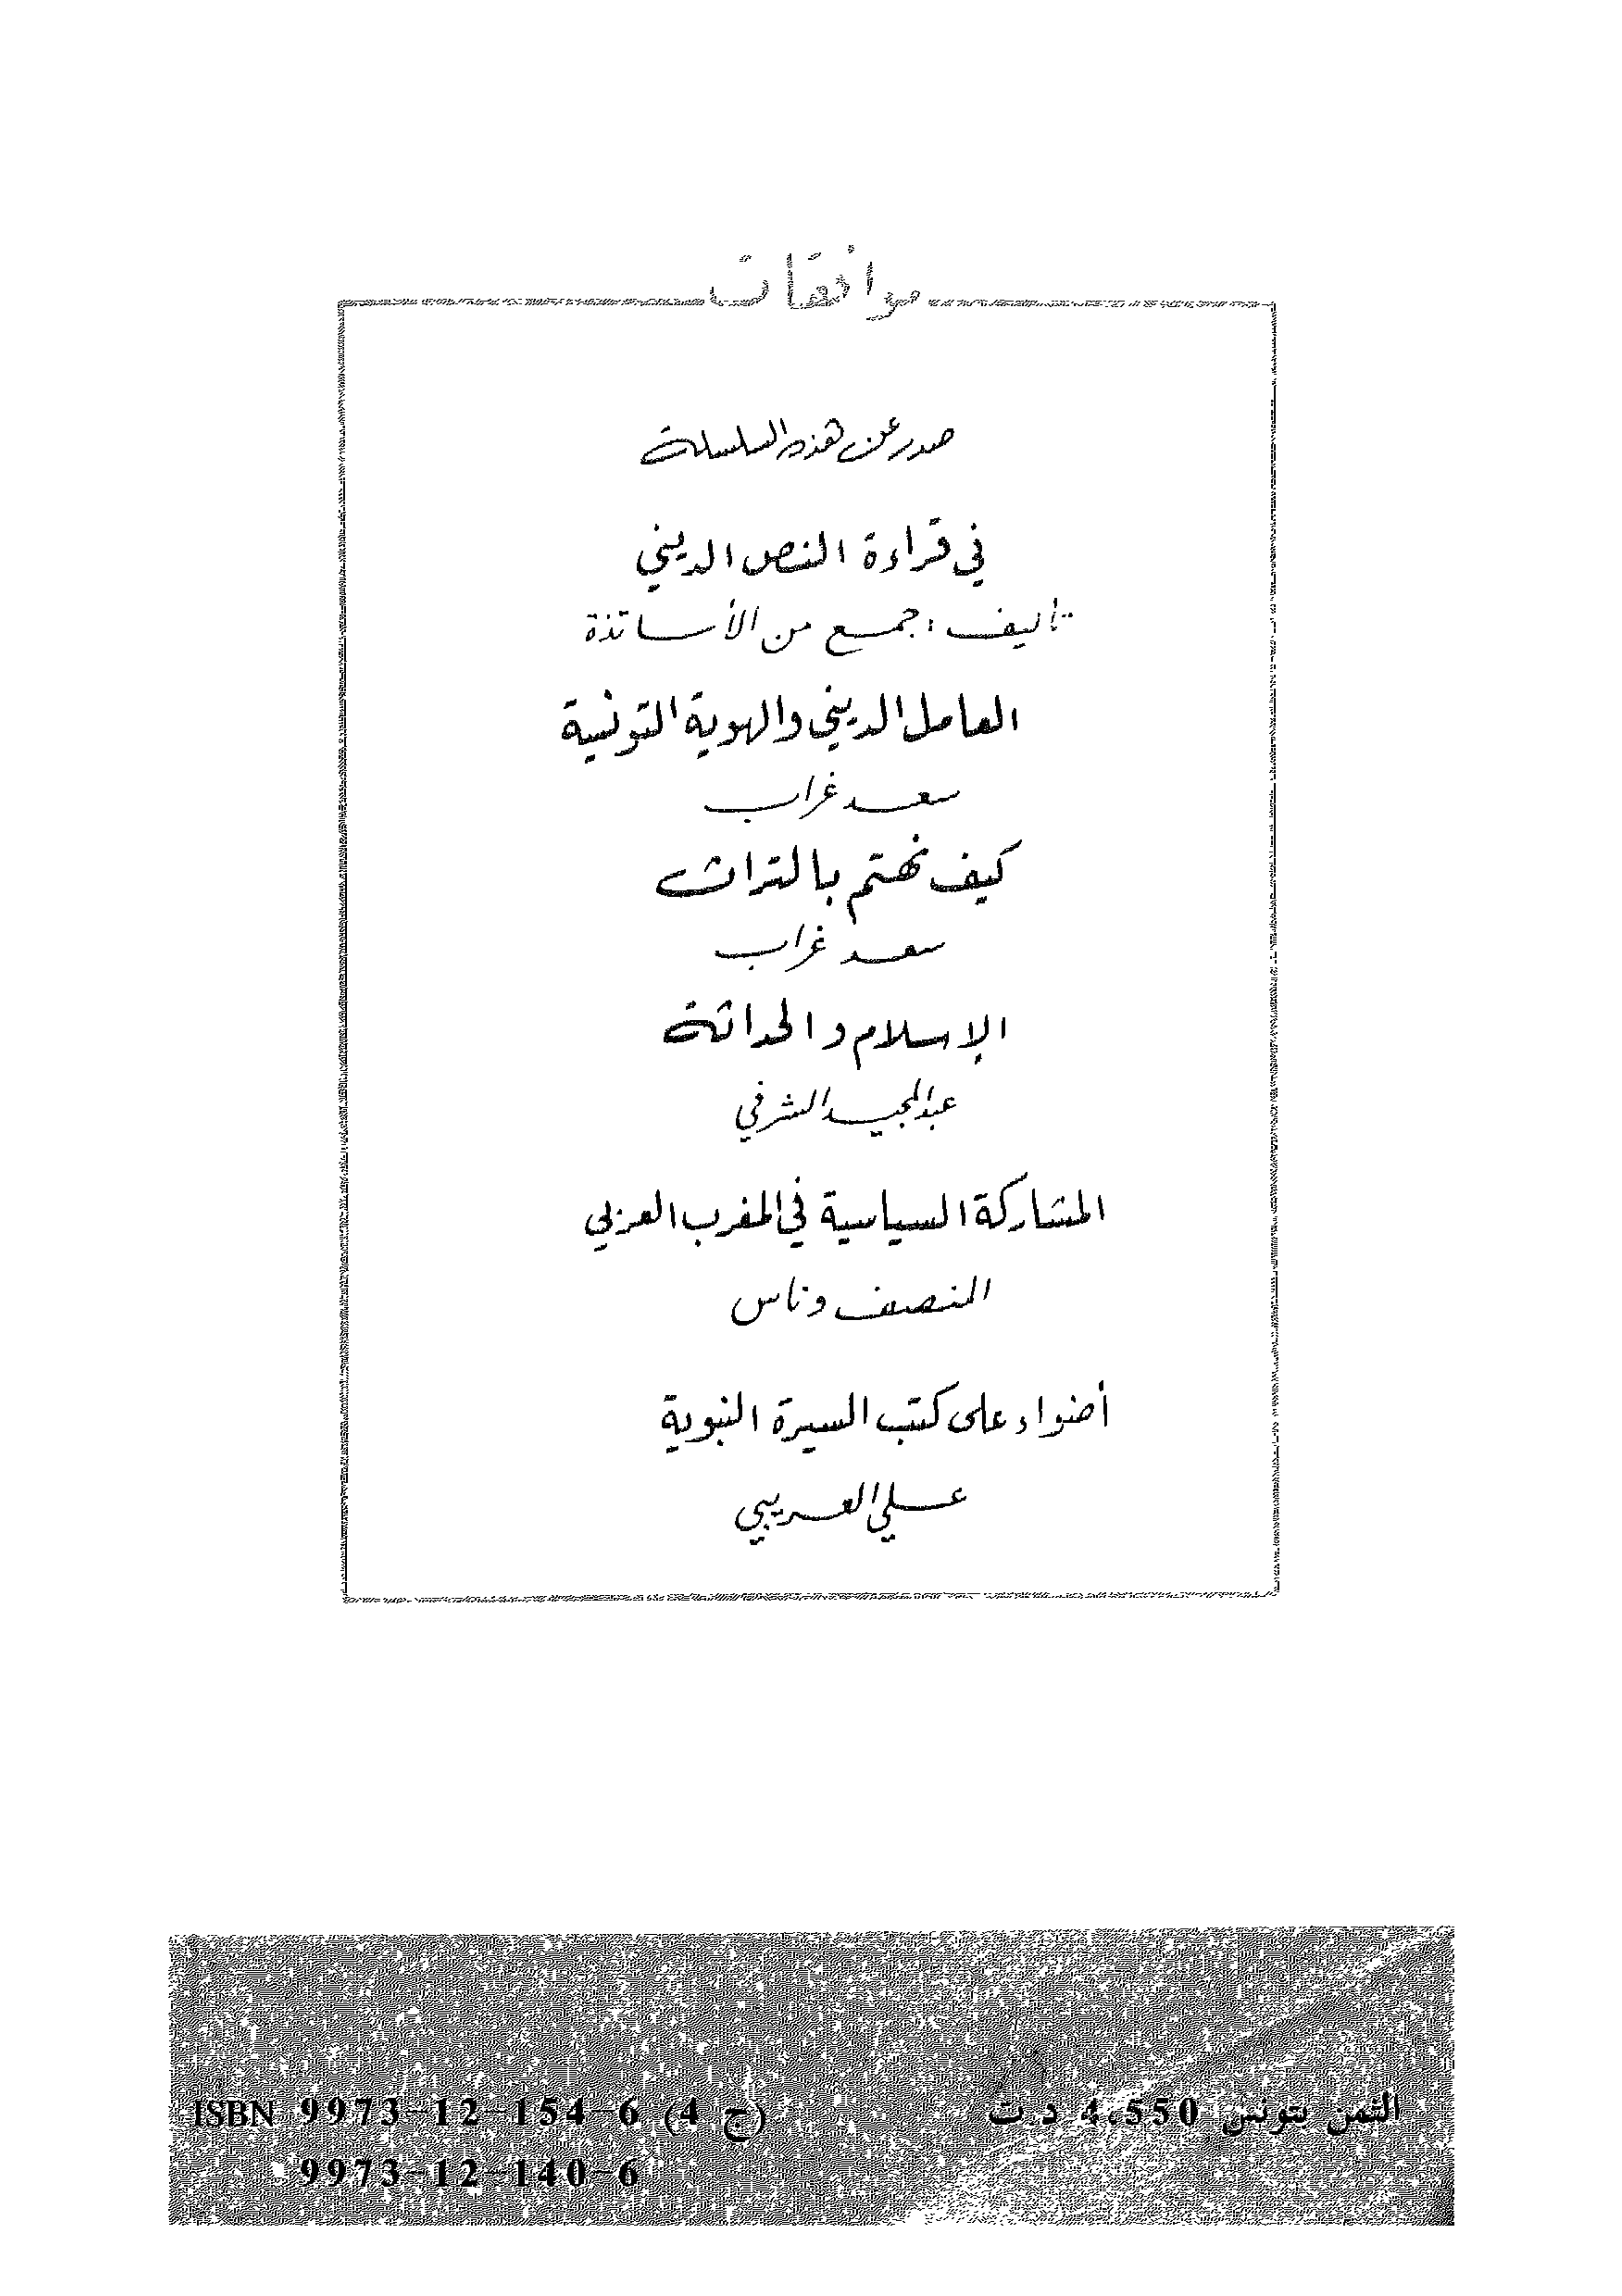 موافقات
صدر عن هذه السلسلة
في قراءة النص الديني
تأليف : جمع من الأساتذة
العامل الديني والهوية التونسية
سعد غراب
كيف نهتم بالتراث
سعد غراب
الإسلام والحداثة
عبد المجيد الشرفي
المشاركة السياسية في المغرب العربي
المنصف وناس
أضواء على كتب السيرة النبوية
علي العريبي
الثمن بتونس 4.550 د.ت
ISBN 9973-12-154-6 (ج 4)
9973-12-140-6